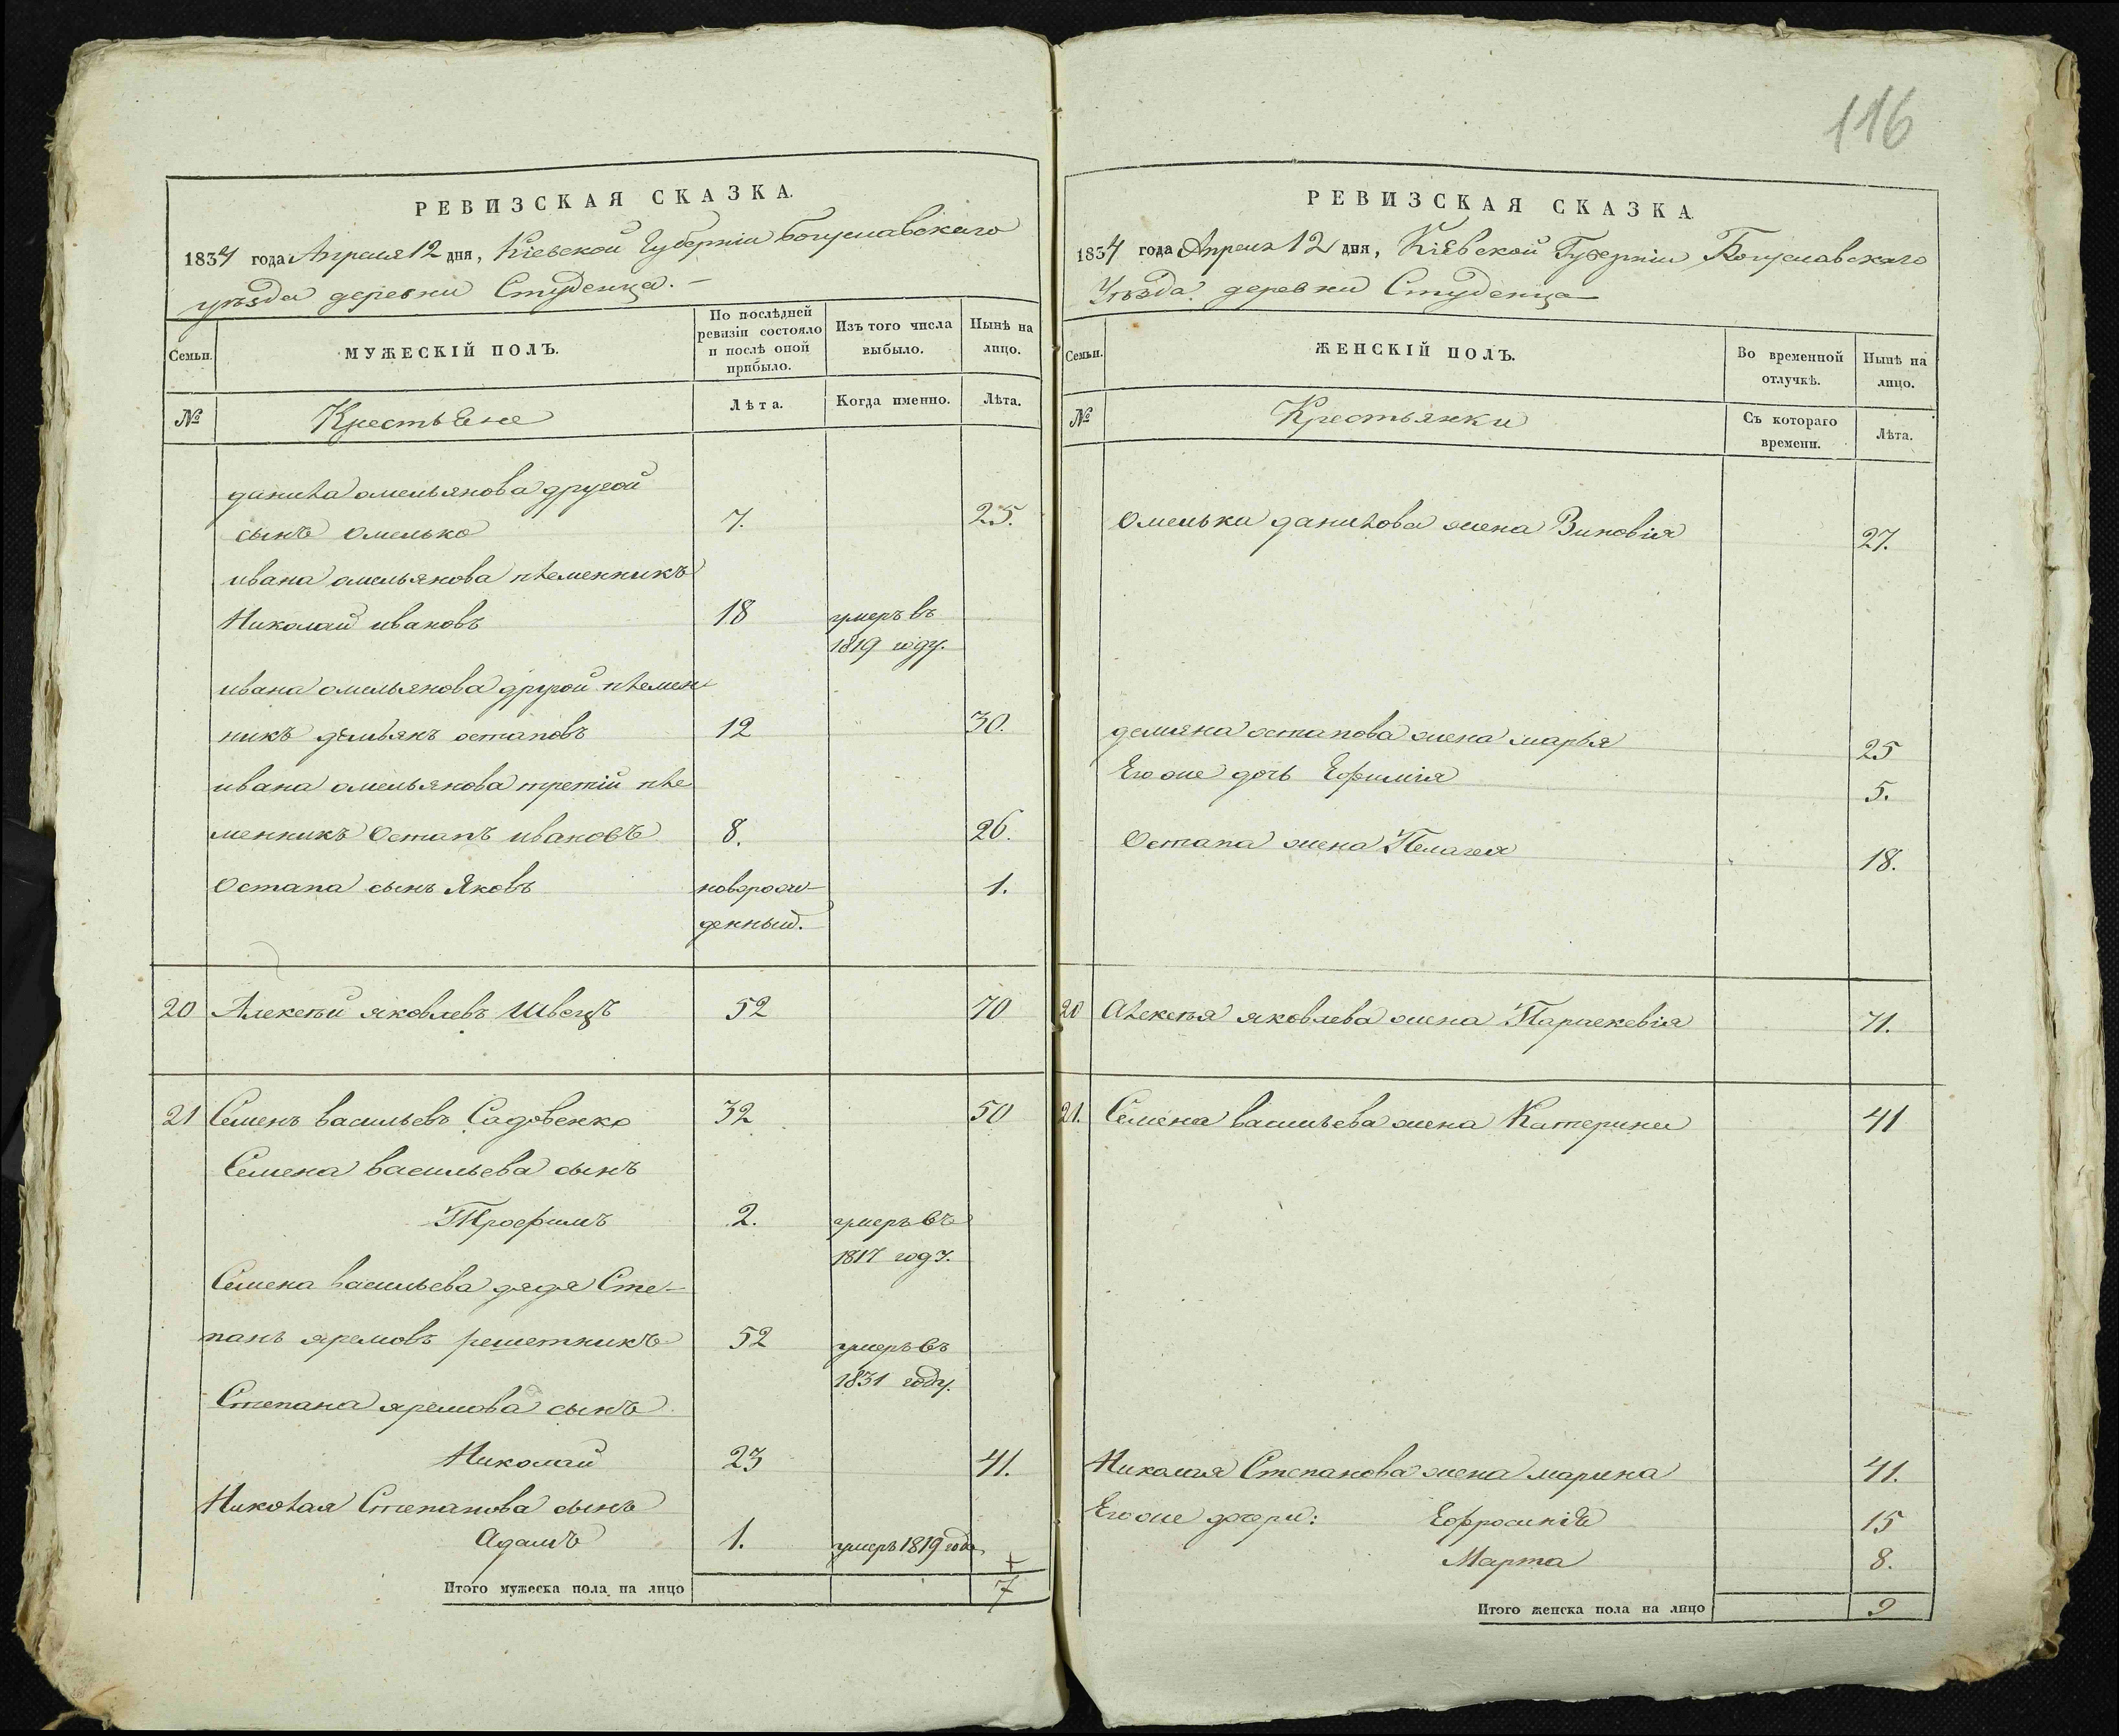 116
РЕВИЗСКАЯ СКАЗКА.
1834 года Апреля 12 дня, Кіевской Губерніи богуславскаго
уѣзда деревни Студенца. –
Семьи.
МУЖЕСКІЙ ПОЛЪ.
По послѣдней ревизіи состояло и послѣ оной прибыло.
Изъ того числа выбыло.
Нынѣ на лицо.
№
Крестьяне
Лѣта.
Когда именно.
Лѣта.
данила омельянова другой
сынъ омелько 7. 25.
ивана омельянова племенникъ
Николай ивановъ 18 умеръ въ
1819 году.
ивана омельянова другой племен
никъ демьянъ остаповъ 12 30.
ивана омельянова третій пле
менникъ Остапъ ивановъ 8. 26.
Остапа сынъ Яковъ новорож- 1.
денный.
20 Алексѣй яковлевъ Швецъ 52 70
21 Семенъ васильевъ Садовенко 32 50
Семена васильева сынъ
Трофимъ 2. умеръ въ
1817 году.
Семена васильева дядя Сте-
панъ яремовъ решетникъ 52 умеръ въ
1831 году.
Степана яремова сынъ
Николай 23 41.
Николая Степанова сынъ
Адамъ 1. умеръ 1819 года
Итого мужеска пола на лицо 7
РЕВИЗСКАЯ СКАЗКА
1834 года Апреля 12 дня, Кіевской Губерніи Богуславскаго
Уѣзда деревни Студенца
Семьи.
ЖЕНСКІЙ ПОЛЪ.
Во временной отлучкѣ.
Нынѣ на лицо.
№
Крестьянки
Съ котораго времени.
Лѣта.
Омелька данилова жена Зиновія 27.
демяна остапова жена марья 25
Его же дочь Ефимія 5.
Остапа жена Пелагея 18.
20 Алексѣя яковлева жена Параскевія 71.
21. Семена васильева жена Катерина 41
Николая Степанова жена марина 41.
Его же дочери: Ефросинія 15
Марта 8.
Итого женска пола на лицо 9